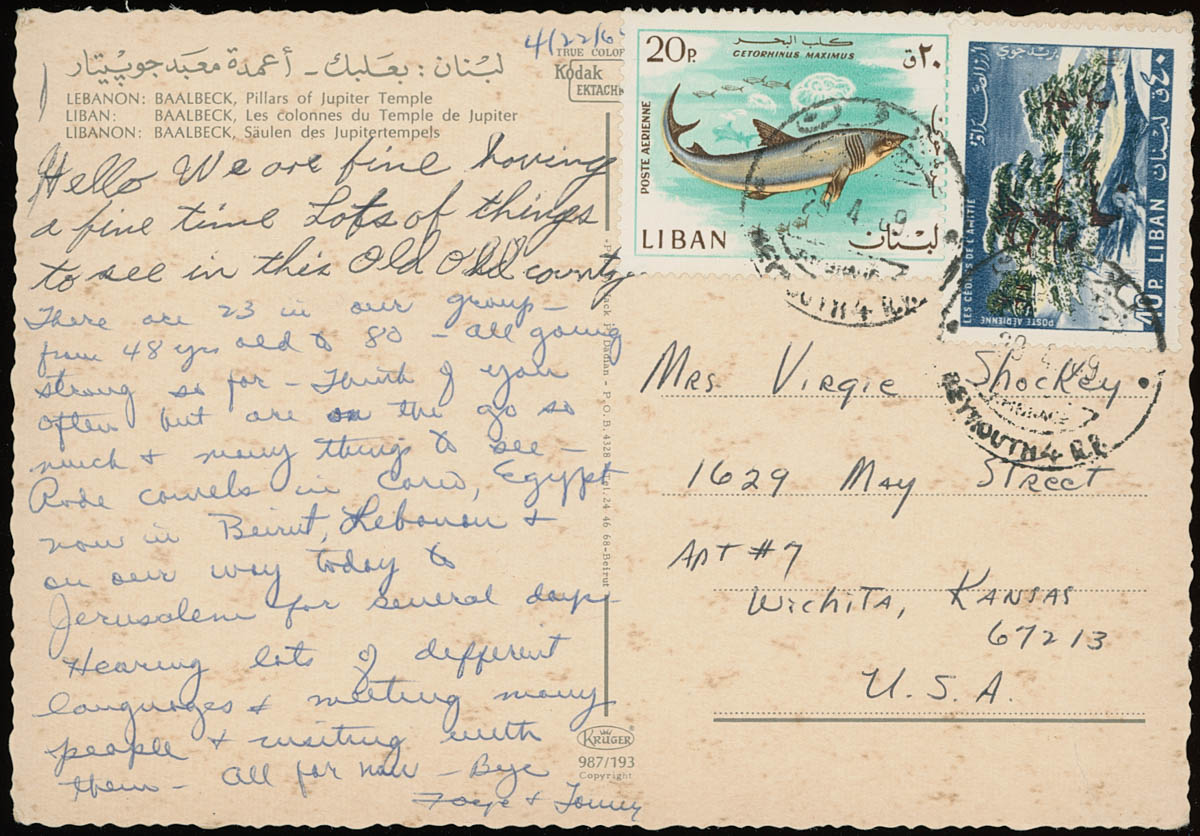 4/22/6
لبنان : بعلبك - أعمدة معبد جوبيتار
LEBANON: BAALBECK, Pillars of Jupiter Temple
LIBAN: BAALBECK, Les colonnes du Temple de Jupiter
LIBANON: BAALBECK, Säulen des Jupitertempels
TRUE COLOR
Kodak
EKTACH
Hello We are fine having
a fine time Lots of things
to see in this Old Old county
There are 23 in our group -
from 48 yrs old to 80 - all going
strong so far - Think of you
often but are on the go so
much & many things to see -
Rode camels in Cario, Egypt
now in Beirut, Lebanon &
on our way today to
Jerusalem for several days -
Hearing lots of different
languages & meeting many
people & visiting with
them - All for now - Bye
Faye & Tommy
P.O.B. 4328 Tel. 24 46 68-Beirut
KRÜGER
987/193
Copyright
20P.
كلب البحر
CETORHINUS MAXIMUS
ق ٢٠
POSTE AERIENNE
بريد جوي
LIBAN لبنان
بريد جوي
ق ٤٠ لبنان
40P LIBAN
LES CÈDRES DE L'AMITIÉ
POSTE AÉRIENNE
BEYROUTH 4 R.P.
BEYROUTH 4 R.P.
Mrs Virgie Shockey
1629 May Street
Apt #7
Wichita, Kansas
67213
U.S.A.